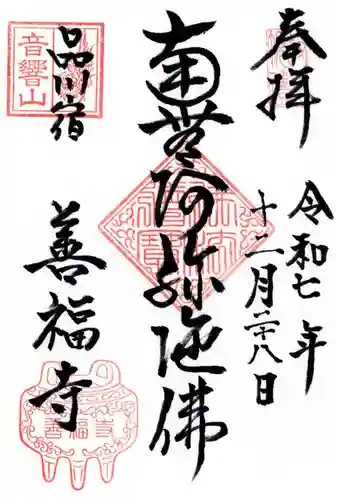 奉拝
令和七年
十二月二十八日
南無阿弥陀佛
品川宿
善福寺
音響山
善福寺